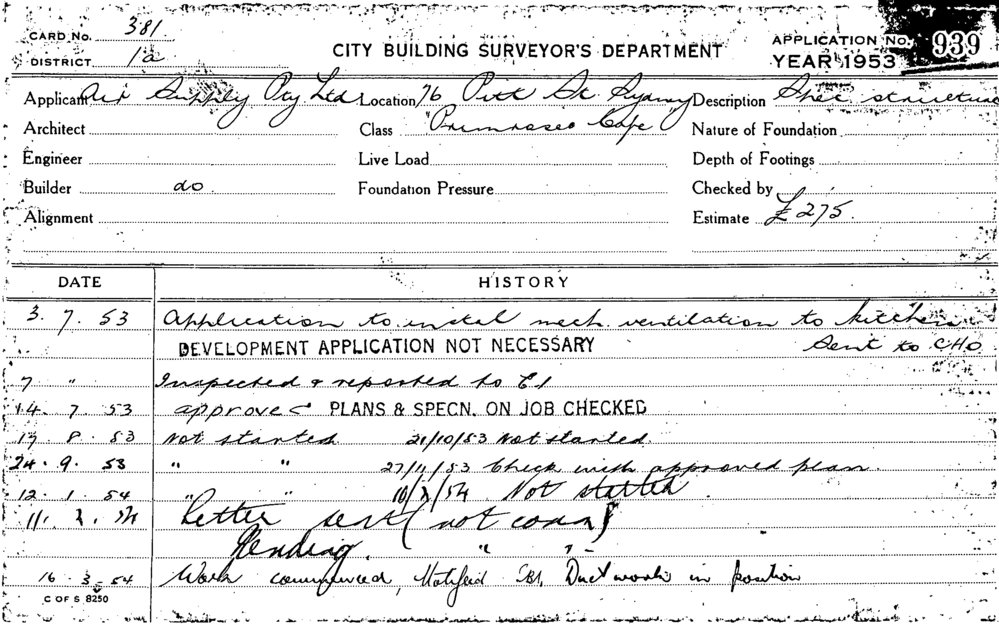 CARD No. 381
DISTRICT 1a
CITY BUILDING SURVEYOR'S DEPARTMENT
APPLICATION No. 939
YEAR 1953
Applicant Air Supply Pty Ltd Location 76 Pitt St Sydney Description Shee structure
Architect Class "Primroses Cafe" Nature of Foundation
Engineer Live Load Depth of Footings
Builder do Foundation Pressure Checked by
Alignment Estimate £275.
DATE HISTORY
3. 7. 53 Application to instal mech. ventilation to kitchen
DEVELOPMENT APPLICATION NOT NECESSARY Sent to CHO
7 " Inspected & reported to
14. 7. 53 approved PLANS & SPECN. ON JOB CHECKED
8. 53 Not started 21/10/53 Not started.
24. 9. 53 " " 27/11/53 Check with approved plan.
12. 1. 54 " " Not started.
Letter sent (not comm)
Pending. " "
16. 3. 54 Work commenced, Notified Ductwork in position
C OF S 8250